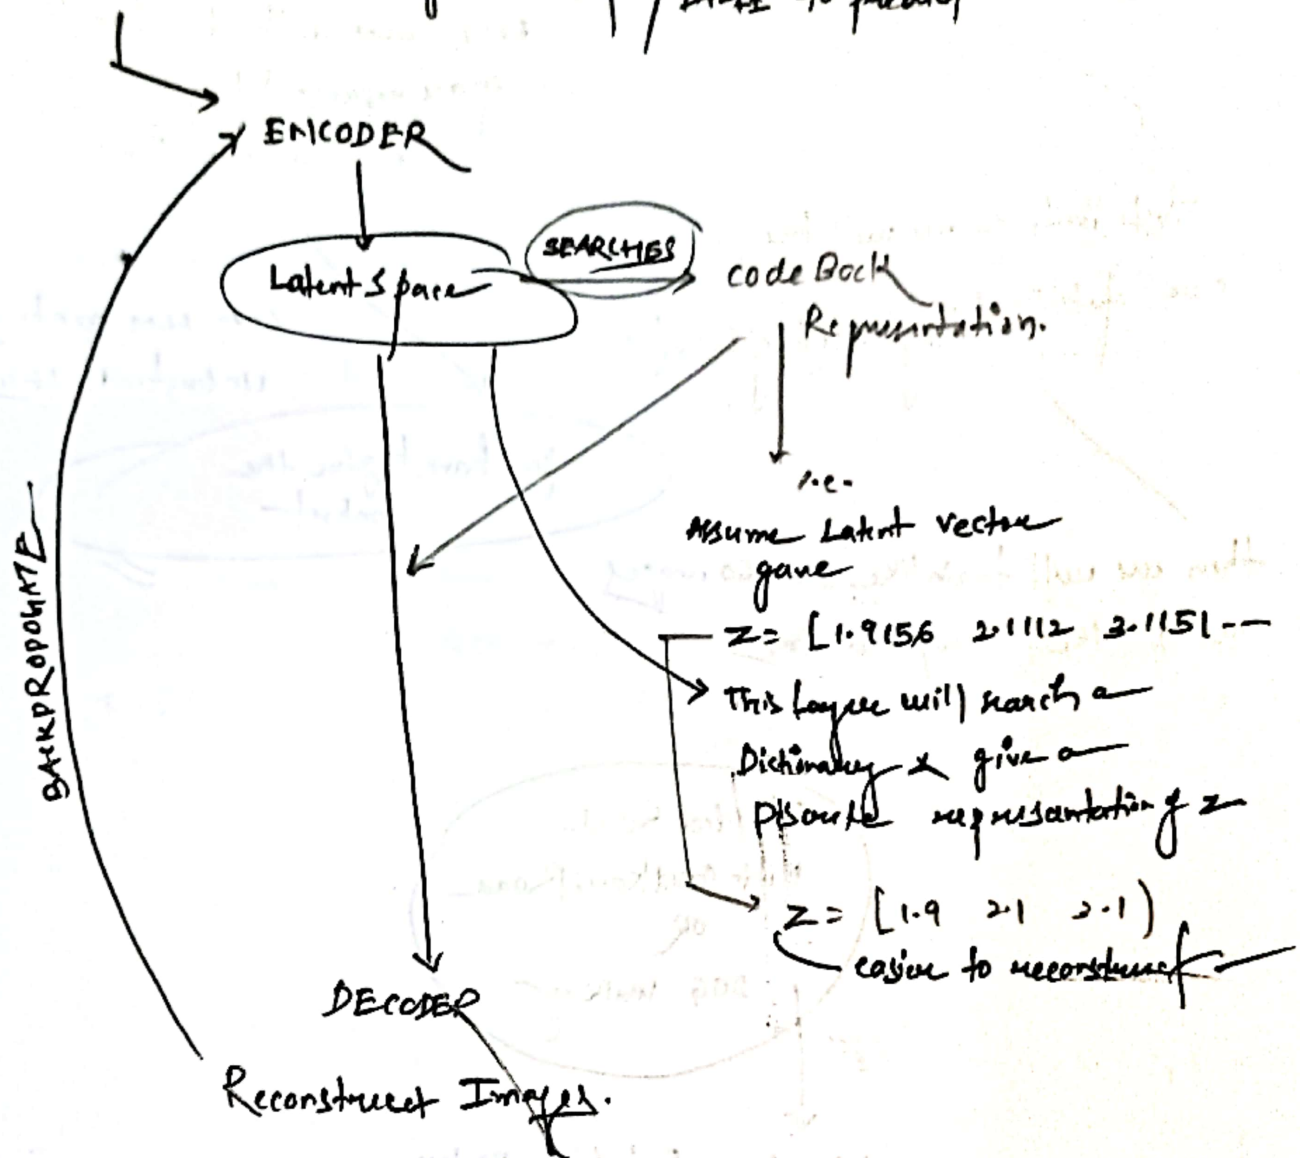 to predict
ENCODER
Latent Space
SEARCHES
code Book
Representation.
i.e.
Assume Latent vector
gave
Z = [1.9156 2.1112 3.1151 --
This layer will search a
Dictionary & give a
Discrete representation of z
Z = [1.9 2.1 3.1)
easier to reconstruct
BACKPROPOGATE
DECODER
Reconstruct Images.